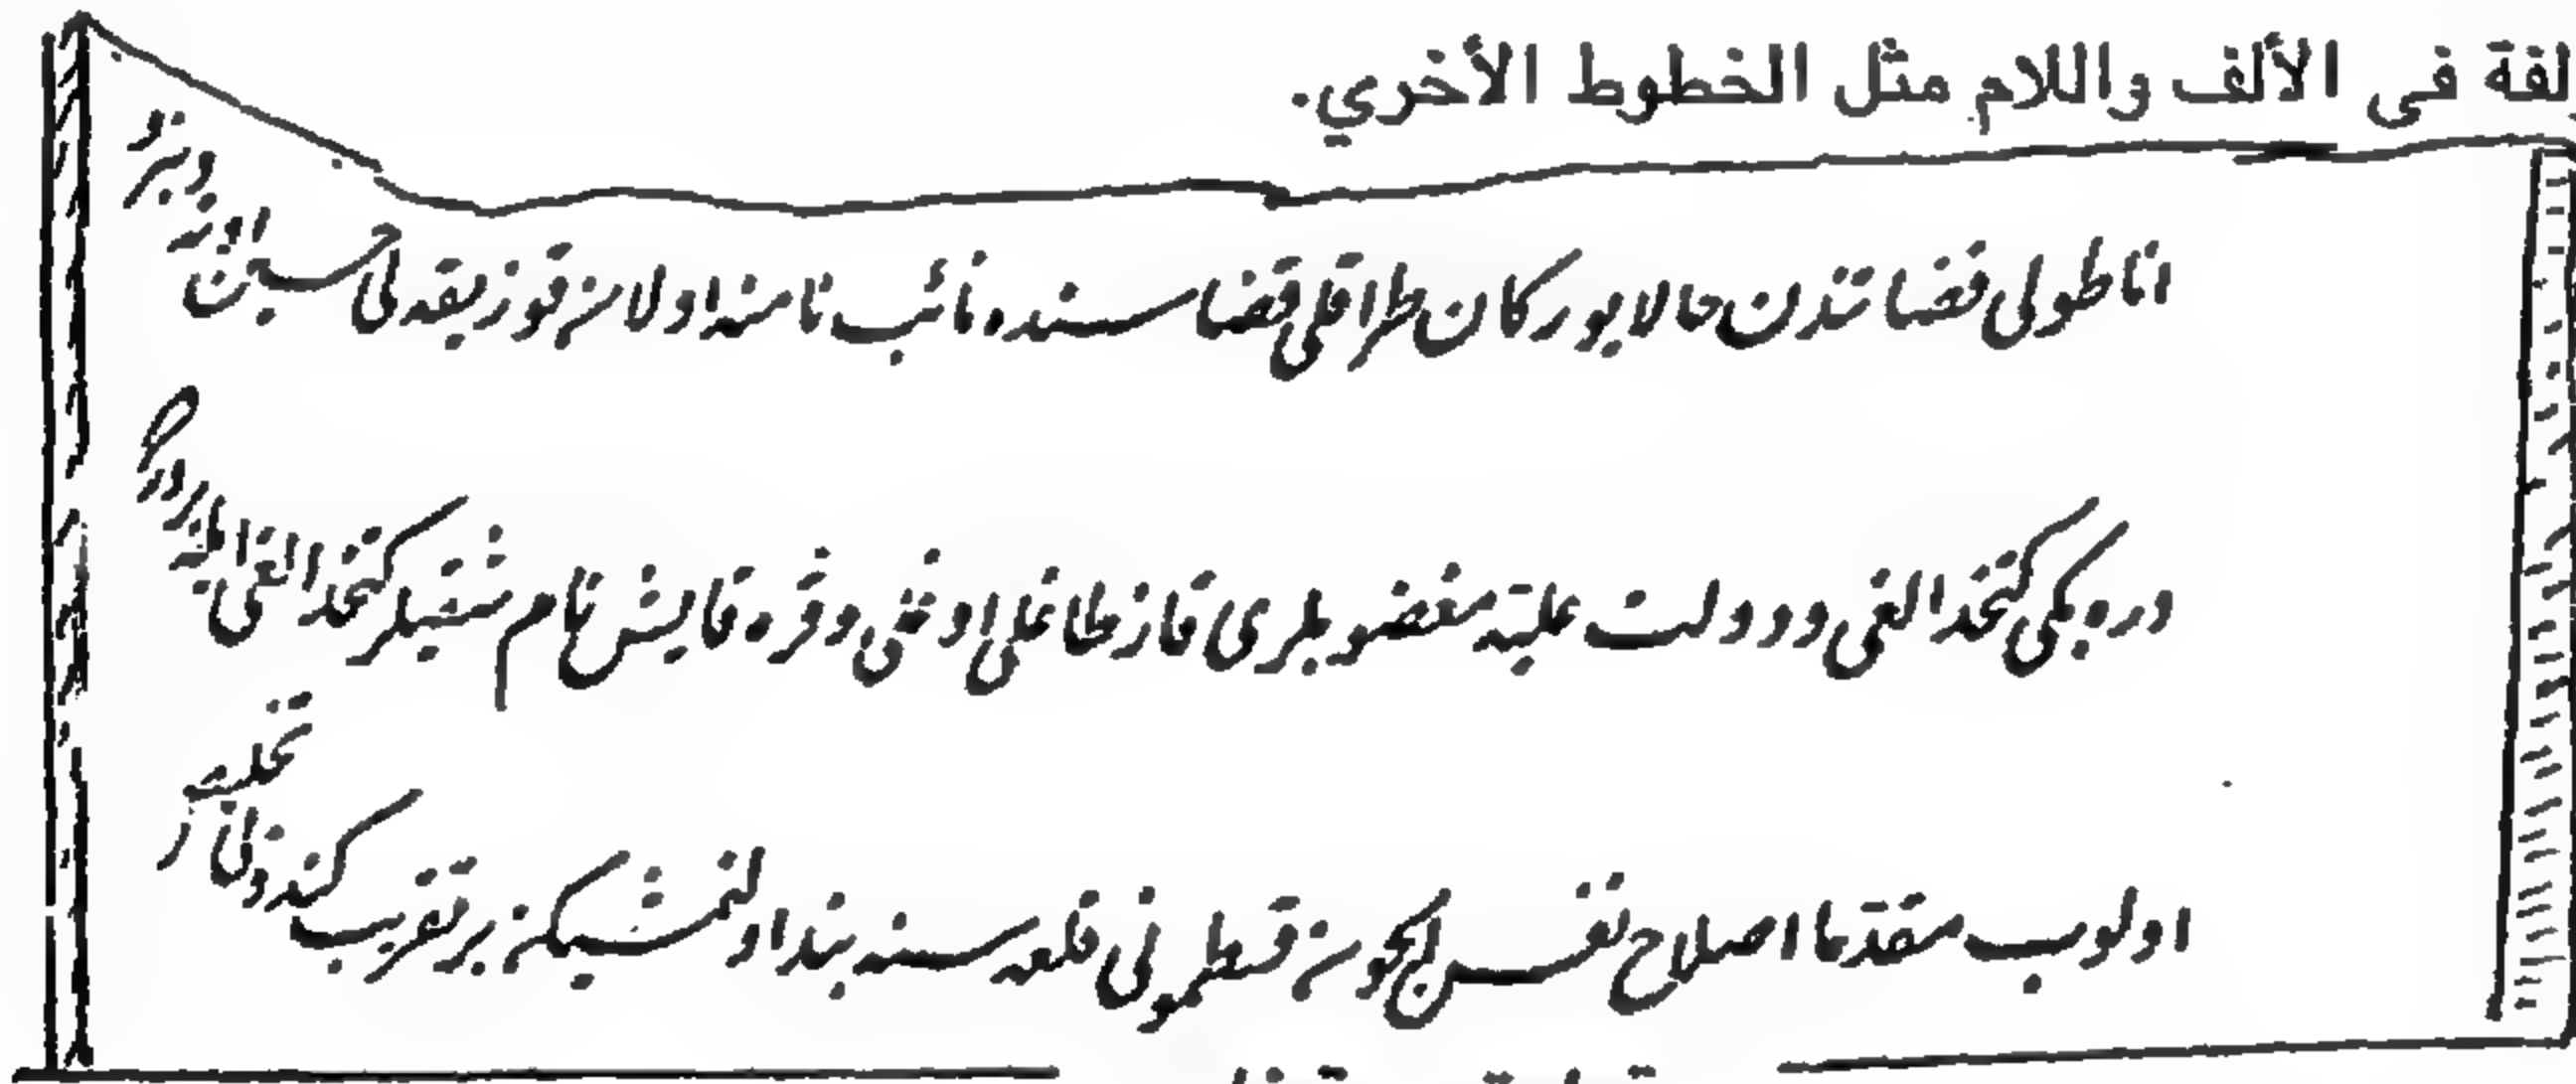 لفة فى الألف واللام مثل الخطوط الأخري.
اناطولى قضاتندن حالا بوركان طراقلى قضاسنده نائب نامنه اولان قوزيقه لى حسين
كتخدا الغى ودولت عليه مغضوبلرى قازطاغلى اوغلى وقره قايش نام شقيلر كتخدا الغى
اولوب مقدما اصلاح نفس ايچون قسطمونى قلعه سنه بند اولنمشيكن بر تقريب كندونى تخليه